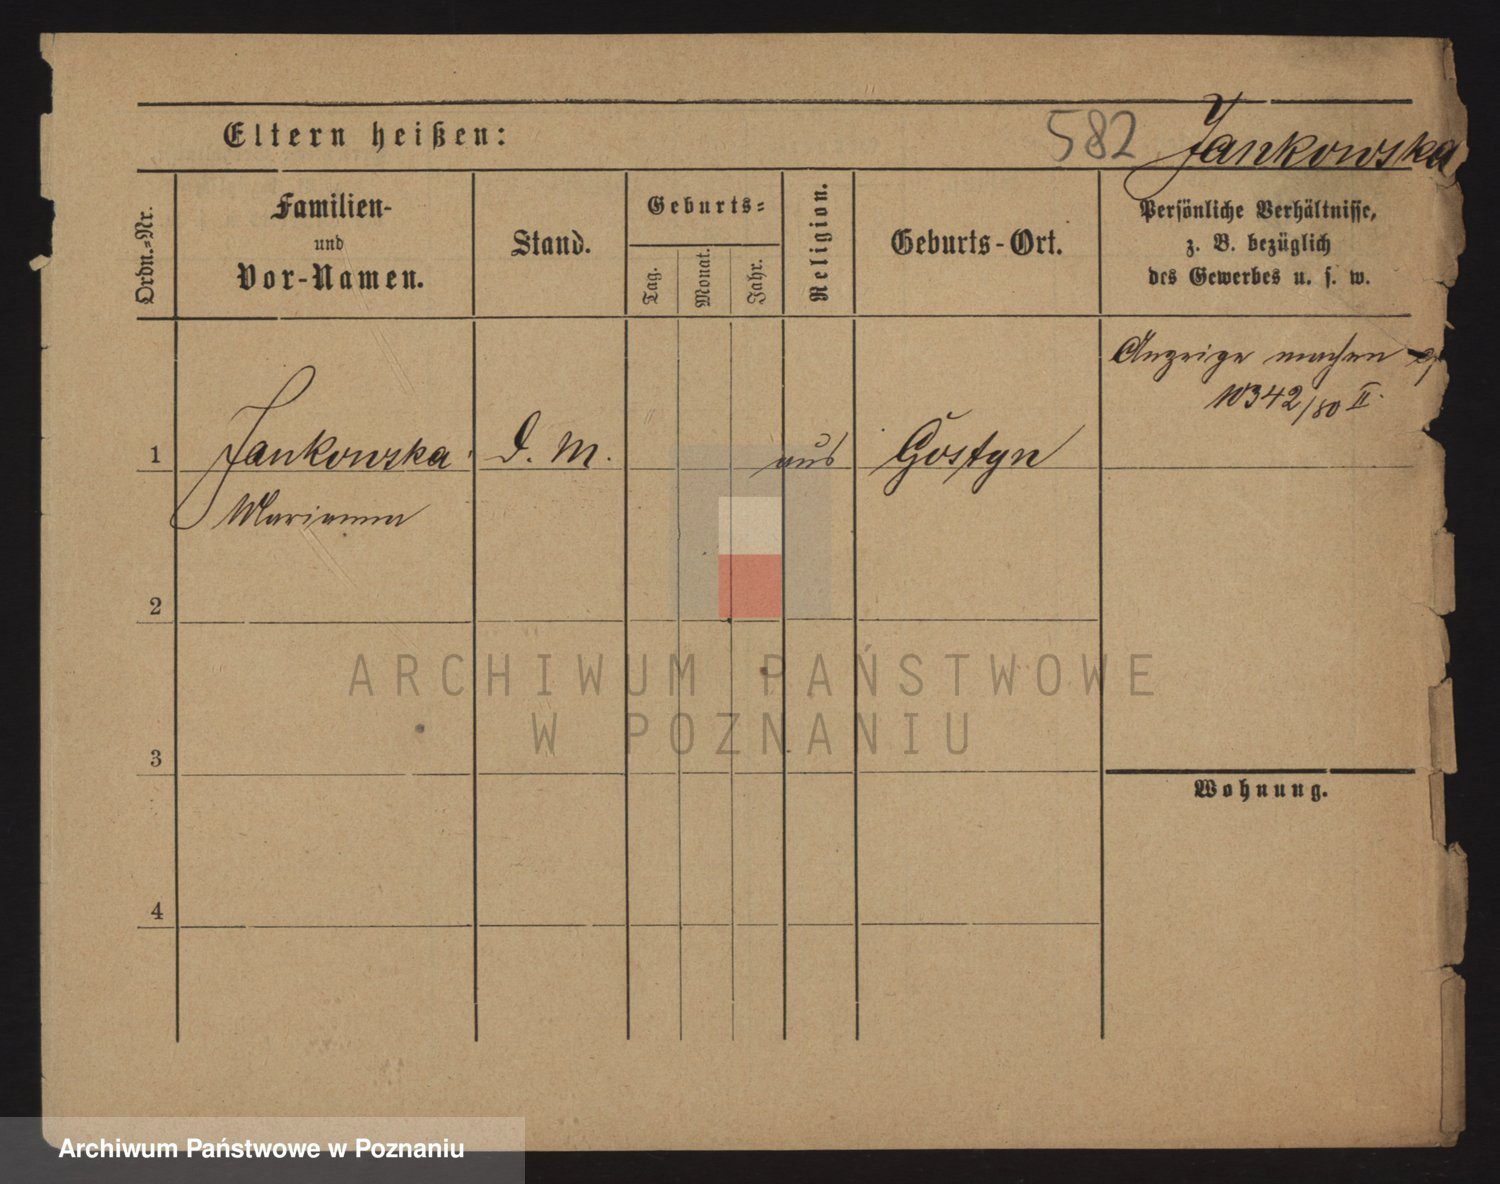 Eltern heißen:
582 Jankowska
Ordn.=Nr.
Familien-
und
Vor-Namen.
Stand.
Geburts=
Tag.
Monat.
Jahr.
Religion.
Geburts-Ort.
Persönliche Verhältnisse,
z. B. bezüglich
des Gewerbes u. s. w.
Anzeige machen
10342/80 II.
1 Jankowska D. M. aus Gostyn
Marianna
2
3
4
Wohnung.
ARCHIWUM PAŃSTWOWE
W POZNANIU
Archiwum Państwowe w Poznaniu